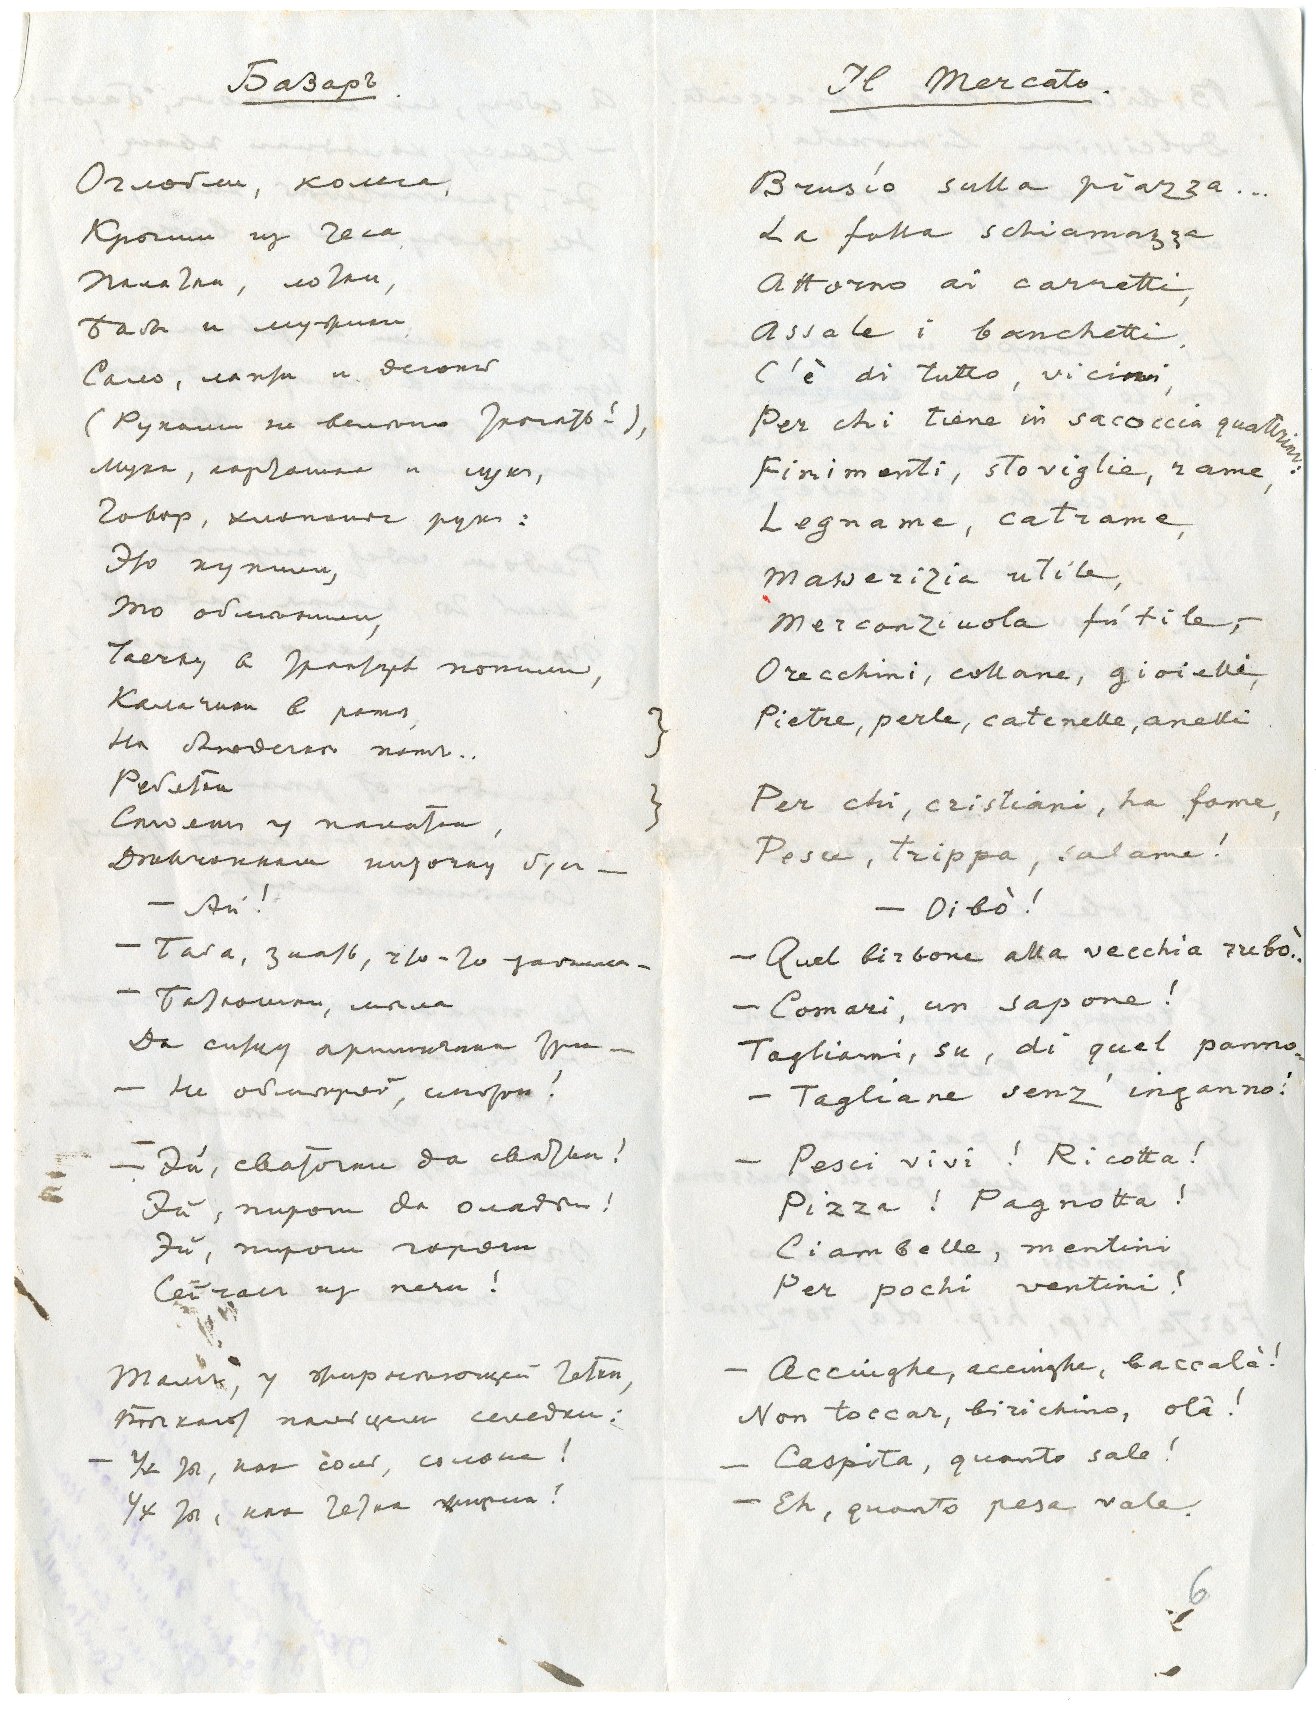 Базаръ.
Оглобли, колеса,
Крыши из теса,
Палатки, лотки,
Бабы и мужики,
Сало, лапти и деготь
(Руками не велено трогать!),
Мука, картошка и лук,
Говор, хлопанье рук:
Это купили,
То облюпили,
в трактире попили,
Калачики в ротъ,
На блюдечко потъ..
Ребятки
у палатки,
Ай!
– Баба, знать, что-то
– Батюшки, мыла
Да ситцу аршинчика три –
– Не обмеряй, смотри!
– Эй, сваточки да сватьи!
Эй, пироги да оладьи!
Эй, пироги горячи
Сейчас из печи!
у тетки,
пальцем селедки:
– Ух ты, как соль, солона!
Ух ты, как тетка жирна!
Il Mercato.
Brusío sulla piazza...
La folla schiamazza
Attorno ai carretti,
Assale i banchetti.
C'è di tutto, vicini,
Per chi tiene in saccoccia quattrini:
Finimenti, stoviglie, rame,
Legname, catrame,
Masserizia utile,
Mercanziuola fútile,–
Orecchini, collane, gioielli,
Pietre, perle, catenelle, anelli.
Per chi, cristiani, ha fame,
Pesce, trippa, salame!
– Oibò!
– Quel birbone alla vecchia rubò..
– Comari, un sapone!
Tagliami, su, di quel panno –
– Tagliane senz' inganno!
– Pesci vivi! Ricotta!
Pizza! Pagnotta!
Ciambelle, mentini
Per pochi ventini!
– Acciughe, acciughe, baccalà!
Non toccar, birichino, olà!
– Caspita, quanto sale!
– Eh, quanto pesa vale.
6